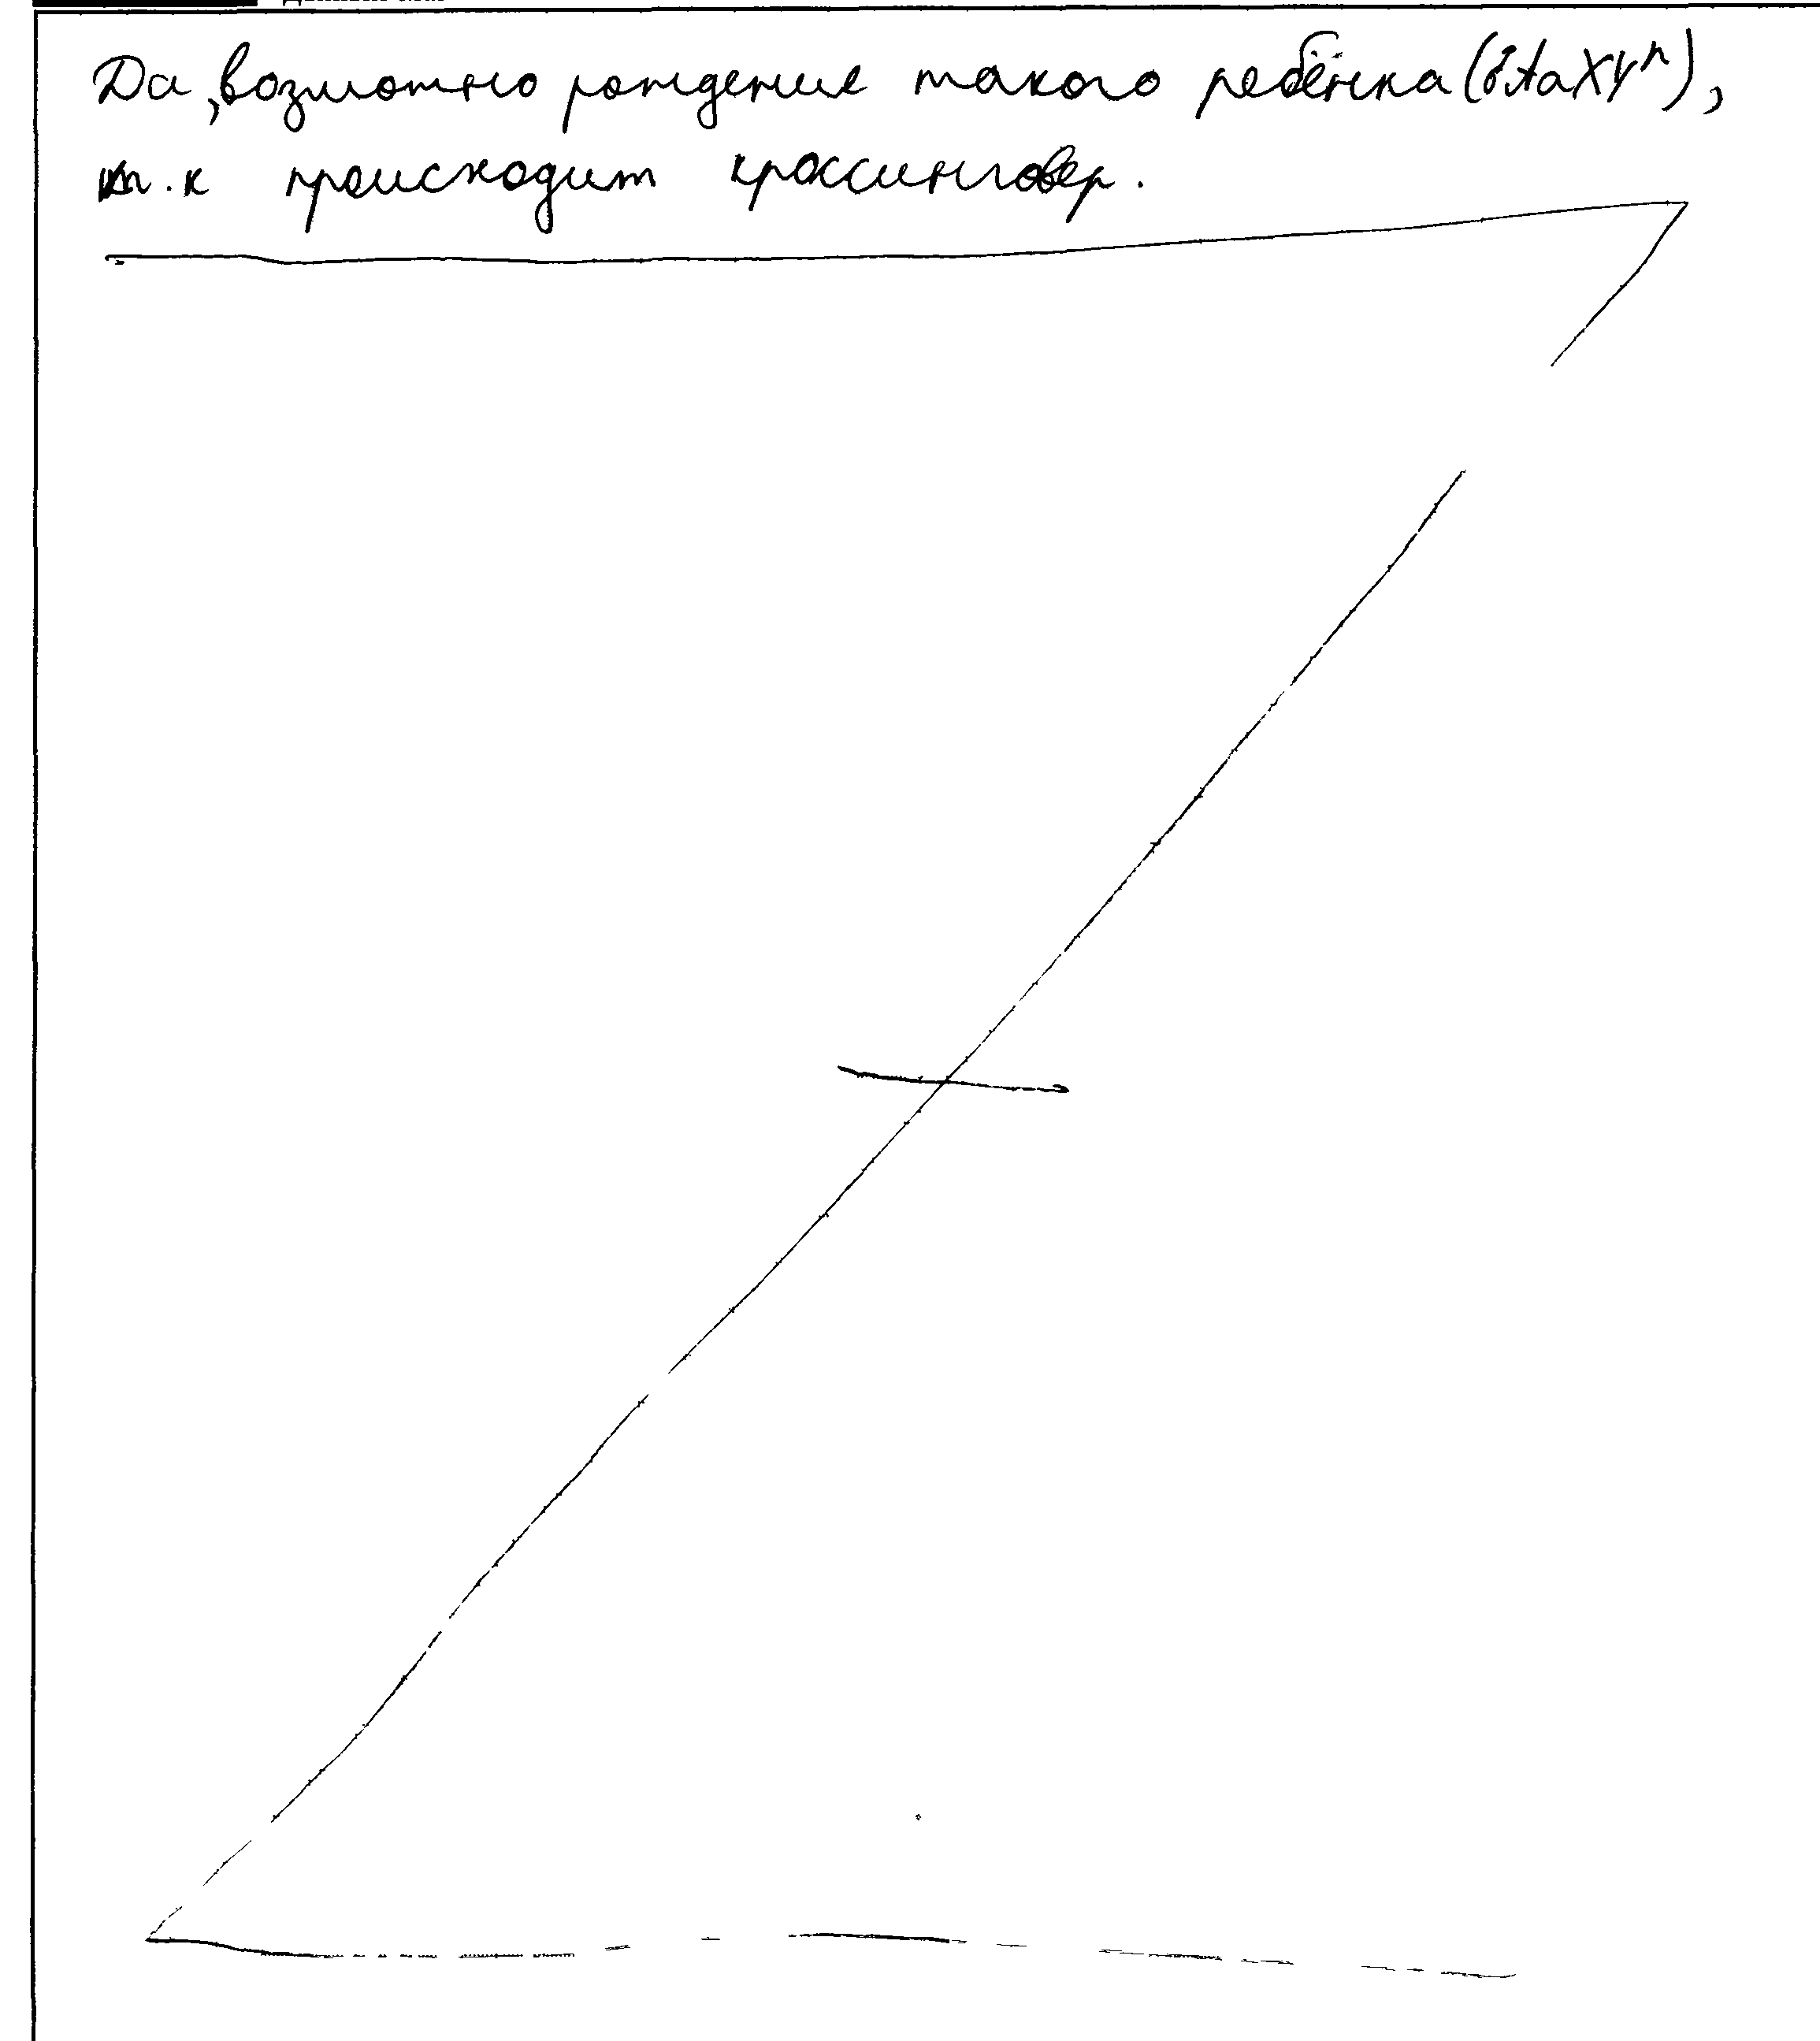 Да, возможно рождение такого ребёнка (♂AaXYⁿ),
т.к происходит кроссинговер.